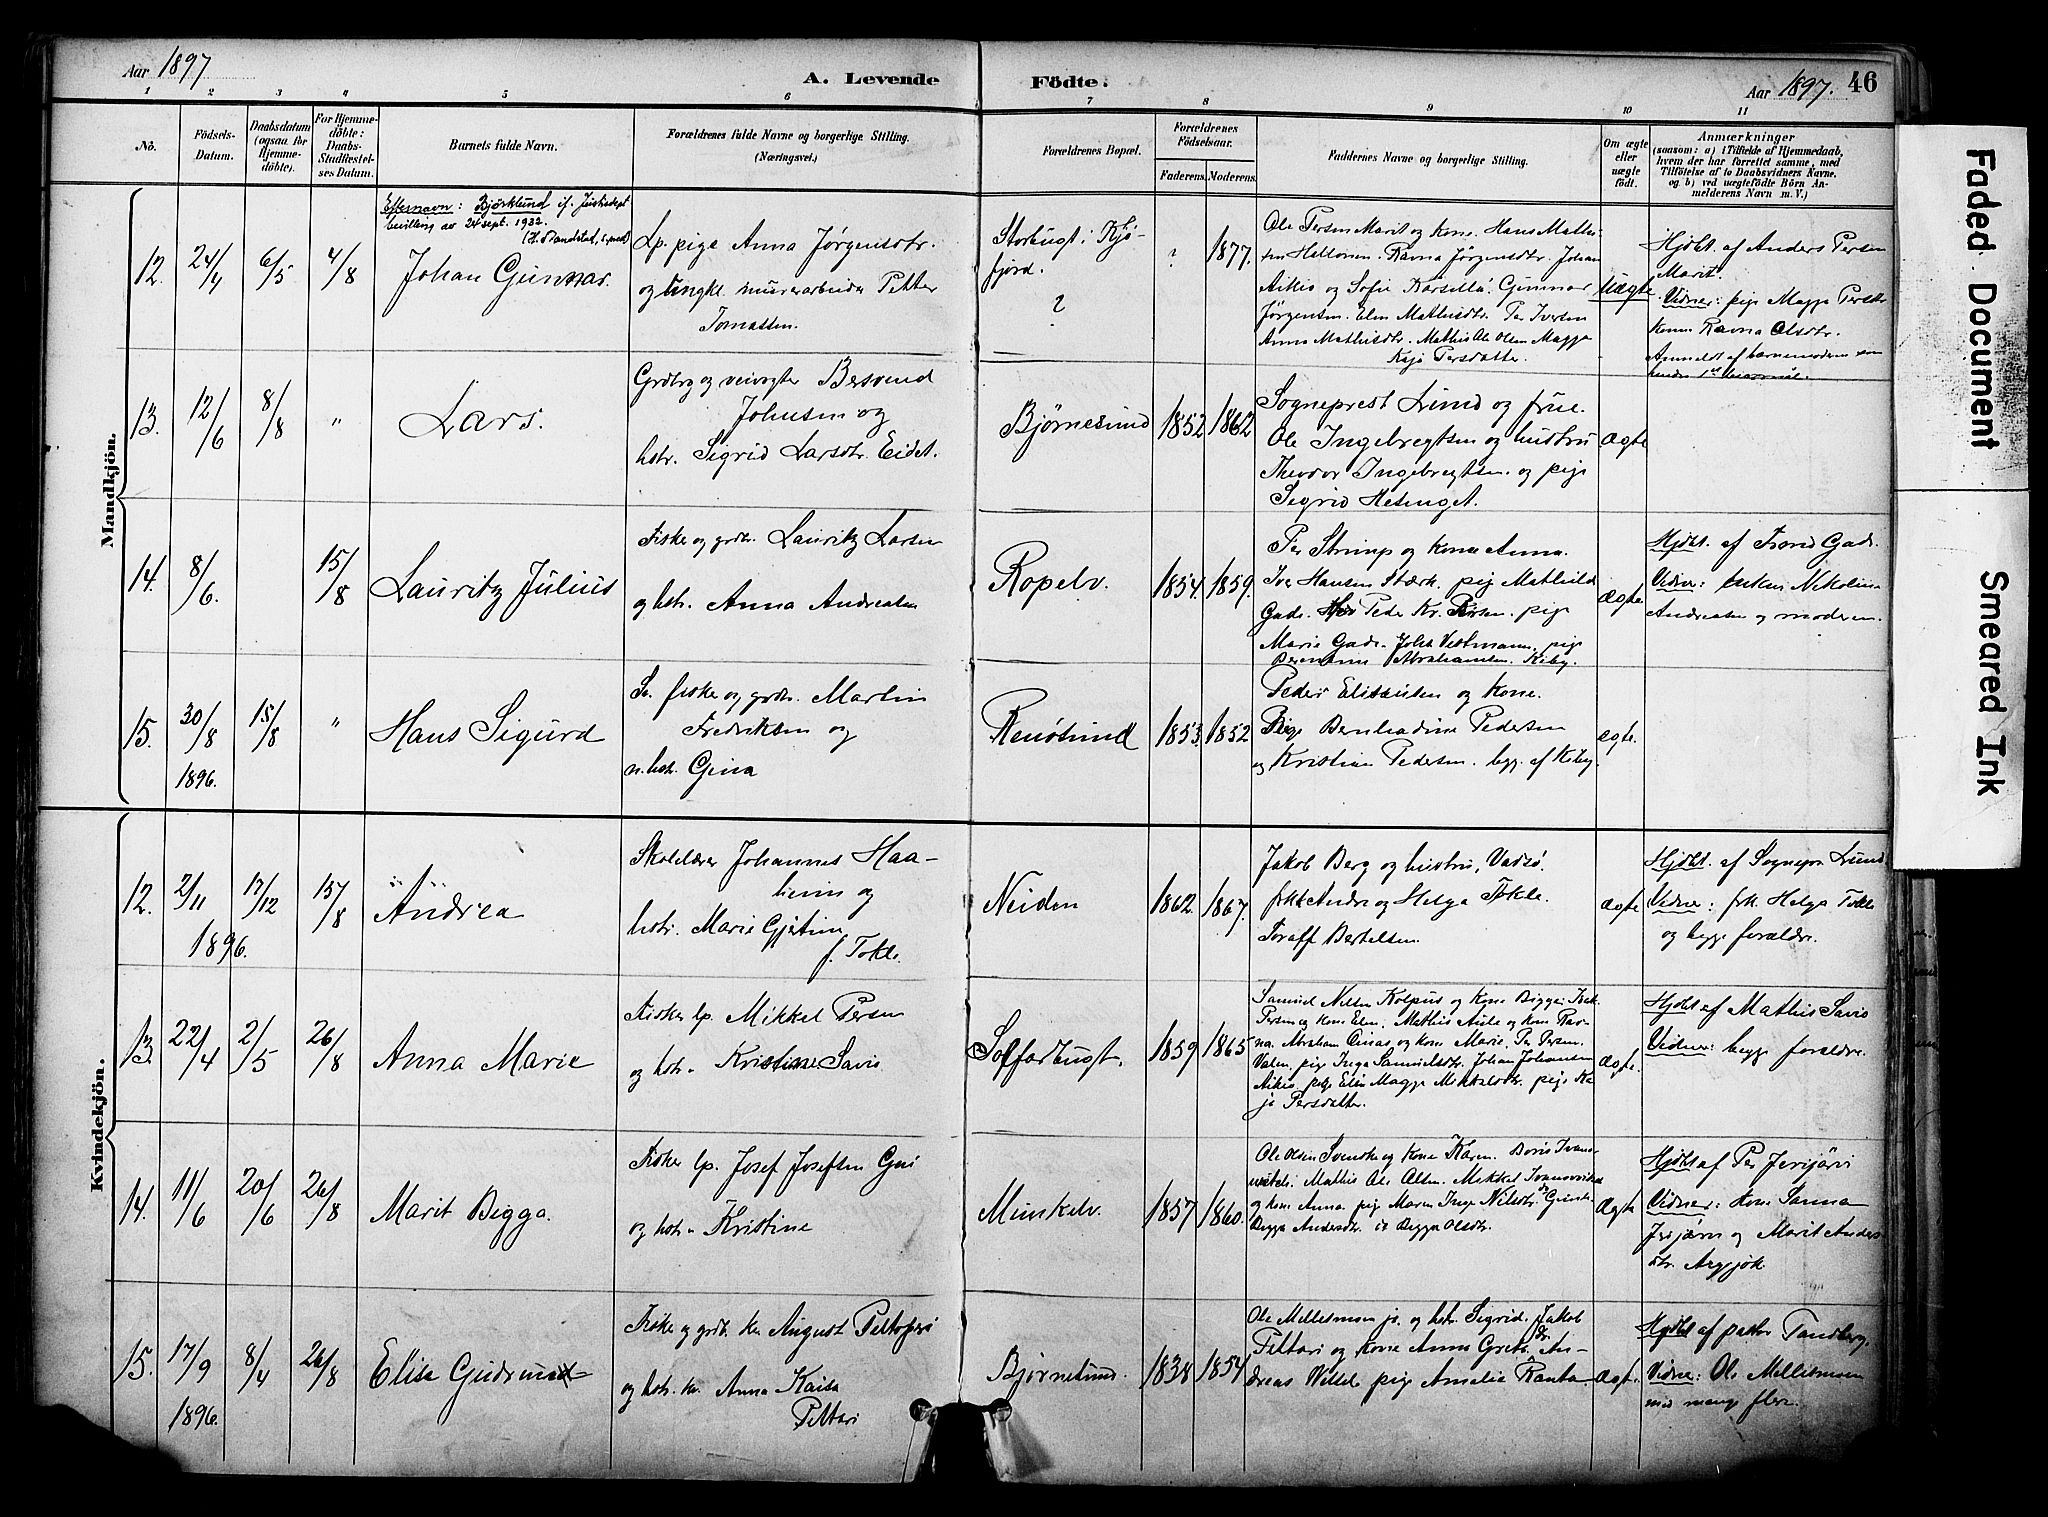 Aar 1897
A. Levende
Födte.
Aar 1897. 46
1 2 3 4 5 6 7 8 9 10 11
No.
Födsels-Datum.
Daabsdatum (ogsaa for Hjemme-döbte).
For Hjemme-döbte: Daabs-Stadfæstel-ses Datum.
Barnets fulde Navn.
Forældrenes fulde Navne og borgerlige Stilling. (Næringsvei.)
Forældrenes Bopæl.
Forældrenes Födselsaar.
Faderens. Moderens.
Faddernes Navne og borgerlige Stilling.
Om ægte eller uægte födt.
Anmærkninger
(saasom: a) i Tilfælde af Hjemmedaab,
hvem der har forrettet samme, med
Tilföielse af to Daabsvidners Navne,
og b) ved uægtefödte Börn An-
melderens Navn m. V.)
Mandkjön.
Efternavn: Björklund if. Justisdept
bevilling av 24 sept. 1932
12. 24/4 6/5 4/8
Johan Gunnar.
Lp. pige Anna Jørgensdtr.
og ungk. murerarbeider Petter
Tomassen.
Storbugt i Kjø-
fjord.
?
? 1877.
Ole Persen Marit og kone. Hans Mathi-
sen Hallonen. Ravna Jørgensdtr. Johan
Aikio og Sofie Karsilla. Gunnar
Jørgensen. Elen Mathisdtr. Per Iversen
Anna Mathisdtr. Mathis Ole Olsen Magga
Kaja Persdatter.
Uægte
Hjdbt. af Anders Persen
Marit.
Vidner: pige Magga Persdtr
kone Ravna Olsdtr.
Anmeldt af barnemoderen som
hendes 1st leiermål.
13. 12/6 8/8 "
Lars.
Grdbrg og veivogter Bersvend
Johnsen og
hstr. Sigrid Larsdtr. Eidet.
Bjørnesund 1852 1862
Sogneprest Lund og frue.
Ole Ingebregtsen og hustru
Theodor Ingebregtsen. og pige
Sigrid Hesinget.
ægte
14. 8/6. 15/8
Lauritz Julius
Fisker og grdbr. Lauritz Larsen
og hstr. Anna Andreasen
Ropelv. 1854. 1859.
Per Strimp og kone Anna.
Iver Hansen Stærk. pige Mathilde
Gade. Peder Kr. Persen. pige
Marie Gade. Johs Vestmann. pige
Abrahamsen. Kiby.
ægte
Hjdbt. af Trond Gade.
Vidner: enken Nikoline
Andreasen og moderen.
15. 30/8 1896. 15/8 "
Hans Sigurd
Sn. fisker og grdbr. Martin
Fredriksen og
n. hstr. Gina
Renøsund 1853. 1852
Peder Eliseussen og kone.
Pige Bernhadine Pedersen
og Kristian Pedersen. begge af Kiby.
ægte.
Kvindekjön.
12. 2/11 1896. 17/12 15/8
Andrea
Skolelærer Johannes Haa-
heim og
hstr. Marie Gjertine
f. Tokle.
Neiden 1862. 1867.
Jakob Berg og hustru, Vadsö.
frk Andre og Helga Tokle.
Toraff Bertelsen.
ægte
Hjdbt. af Sognepr. Lund
Vidner: frk. Helga Tokle
og begge forældre.
13. 22/4 2/5 26/8
Anna Marie
Fisker lp. Mikkel Persen
og hstr. Kristine Savio
Solfarbugt. 1859 1865
Samuel Nilsen Kolpus og kone Bigga. Isak
Persen og kone Elen. Mathis Aule og kone Rav-
na. Abraham Onias og kone Marie. Per Persen
Valen. pige Inga Samuelsdtr. Johan Johansen
Aikio. pige Elen Magga Mikkelsdtr. pige Ka-
ja Persdatter.
ægte.
Hjdbt af Mathis Savio
Vidner: begge forældre.
14. 11/6 20/6 26/8
Marit Bigga.
Fisker lp. Josef Josefsen Gui
og hstr. Kristine
Munkelv. 1857 1860.
Ole Olsen Svenske og kone Karen. Boris Ivano-
witch. Mathis Ole Olsen. Mikkel Ivanowitch
og kone Anna. pige Maren Inga Nilsdtr.
Bigga Andersdtr. Bigga Olsdtr.
ægte
Hjdbt af Per Jerijärvi
Vidner: kone Sanna
Jerijärvi og Marit Anders
dtr. Argjok
15. 17/9 1896. 8/4 26/8
Elisa Gudrun
Fisker og grdbr. kv. August Peltoperi
og hstr. kv. Anna Kaisa
Peltari
Bjørnesund. 1838 1854.
Ole Mellesmoen jr. og hstr. Sigrid. Jakob
Peltari og kone Anna Greta. An-
dreas Wessel pige Amalie Ranta.
ægte.
Hjdbt af pastor Tandberg.
Vidner: Ole Mellesmoen
med mange flere.
Faded Document
Smeared Ink